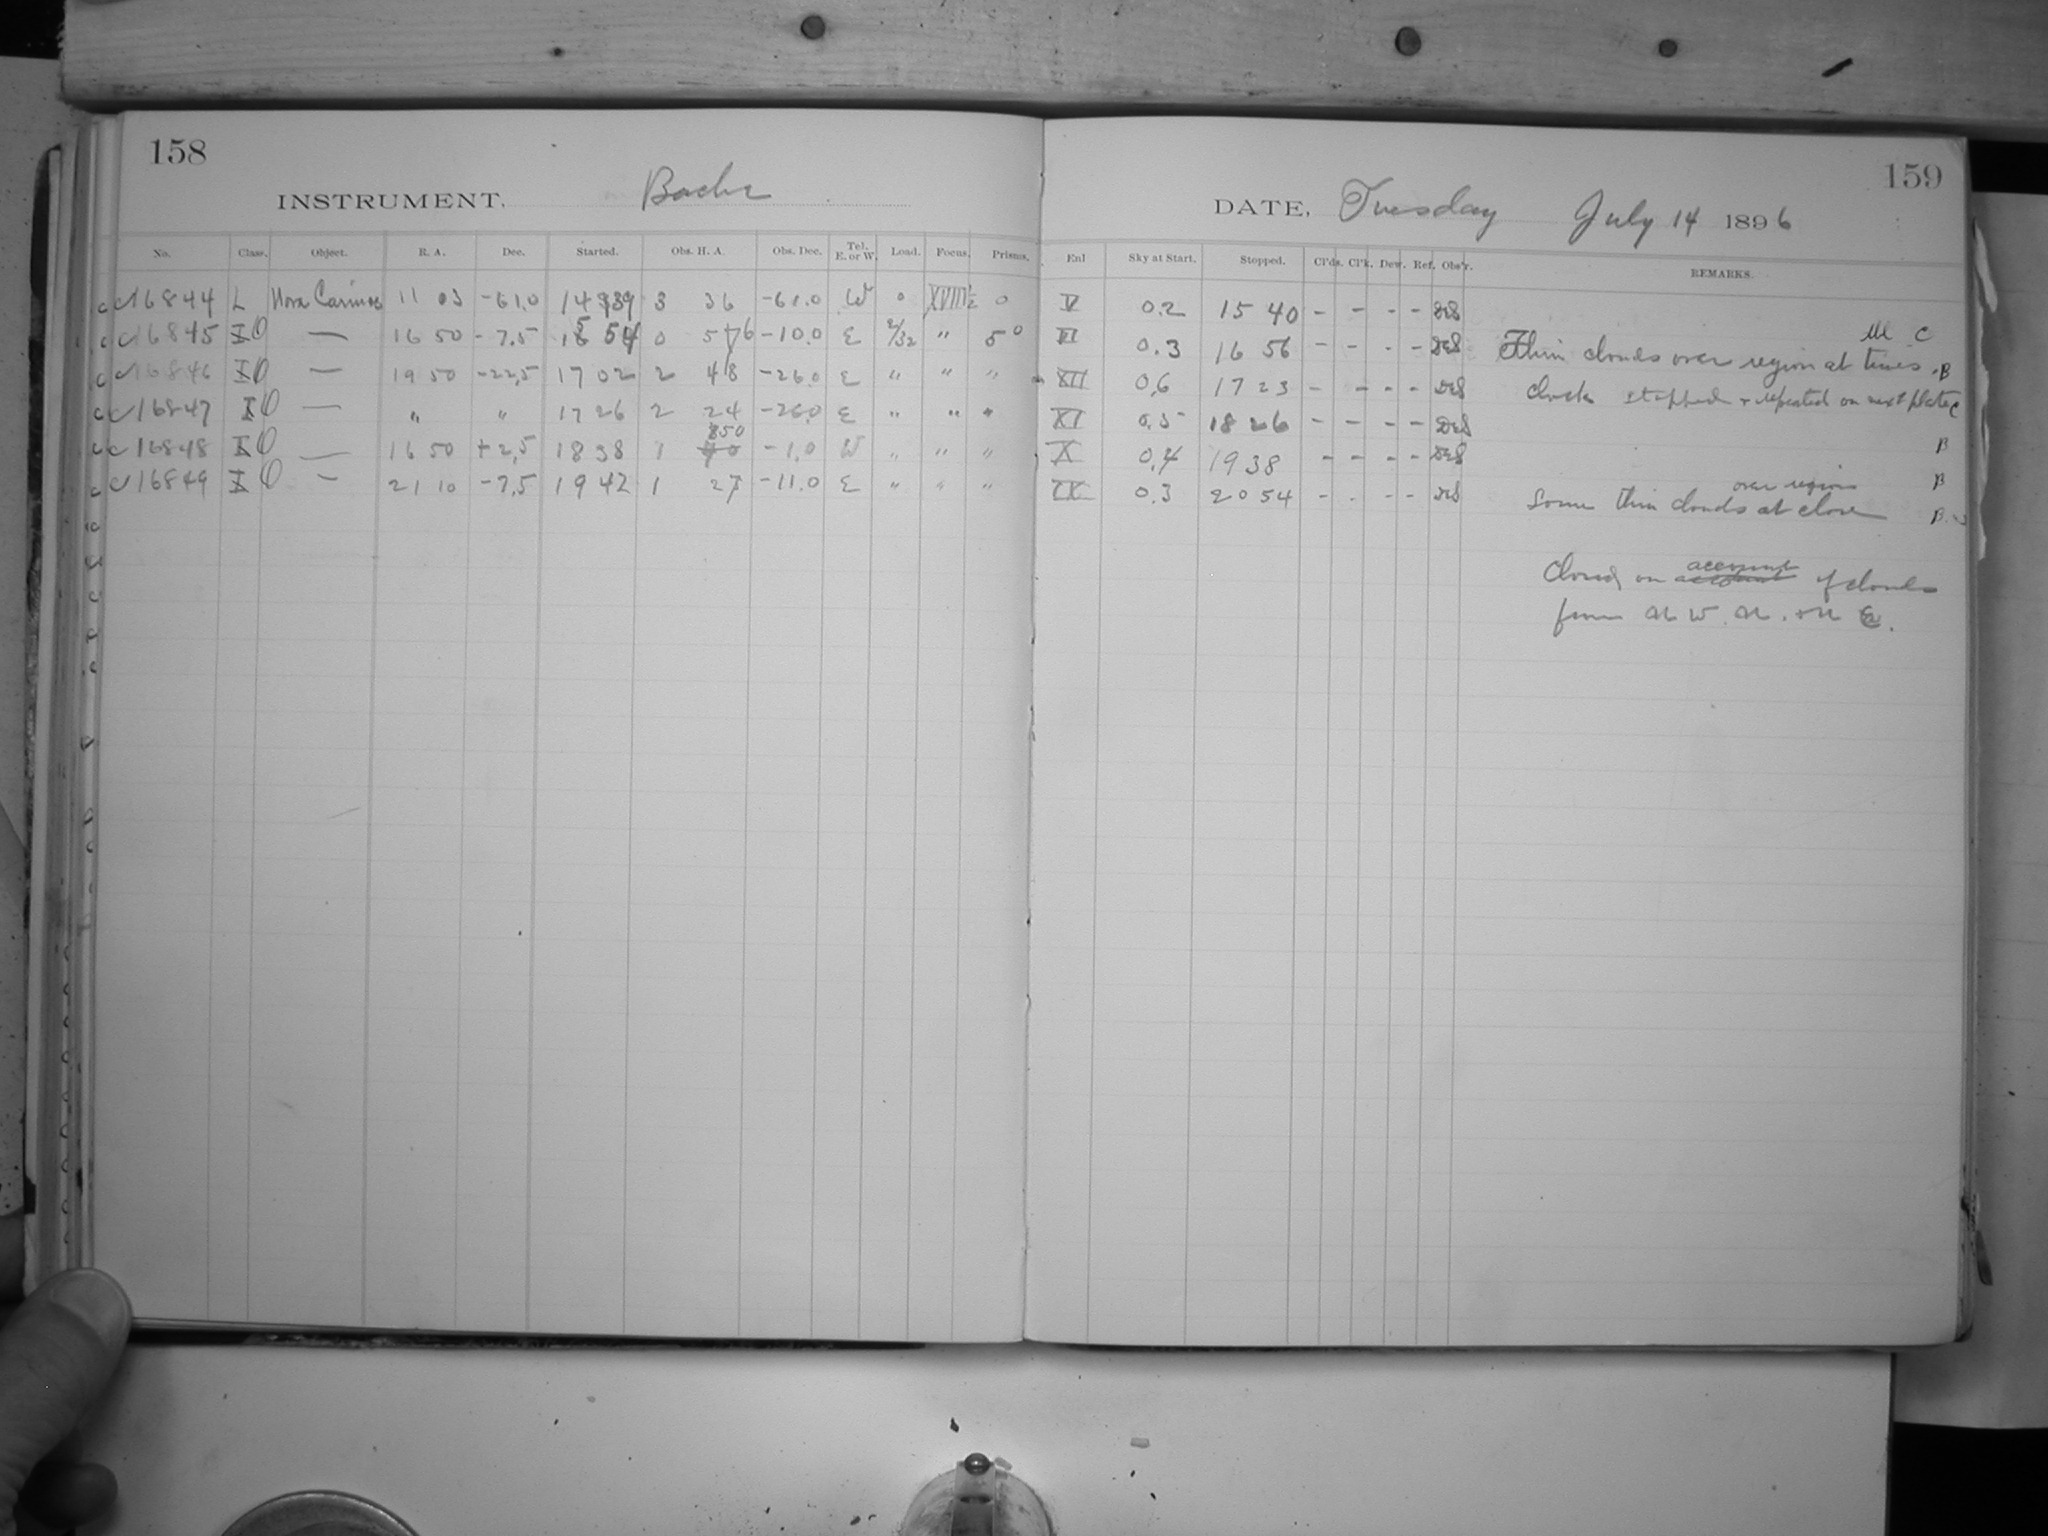 158
INSTRUMENT, Bache
No. Class. Object. R. A. Dec. Started. Obs. H. A. Obs. Dec. Tel. E. or W. Load. Focus. Prisms.
16844 L Nova Carinae 11 03 -61.0 14 39 3 36 -61.0 W 0 XVIII½ 0
16845 X O — 16 50 -7.5 15 54 0 56 -10.0 E 2/32 " 5°
16846 X O — 19 50 -22.5 17 02 2 48 -26.0 E " " "
16847 X O — " " 17 26 2 24 -26.0 E " " "
16848 X O — 16 50 +2.5 18 38 1 50 -1.0 W " " "
16849 X O — 21 10 -7.5 19 42 1 27 -11.0 E " " "
159
DATE, Tuesday July 14 1896
Enl Sky at Start. Stopped. Cl'ds. Cl'k. Dew. Ref. Obs'r. REMARKS.
V 0.2 15 40 - - - - DES
VI 0.3 16 56 - - - - DES Thin clouds over region at times. B
XII 0.6 17 23 - - - - DES Clock stopped + repeated on next plate C
XI 0.5 18 26 - - - - DES
X 0.4 19 38 - - - - DES B
IX 0.3 20 54 - - - - DES Some thin clouds over region at close B
Closed on account of clouds
from N W. N. + N E.